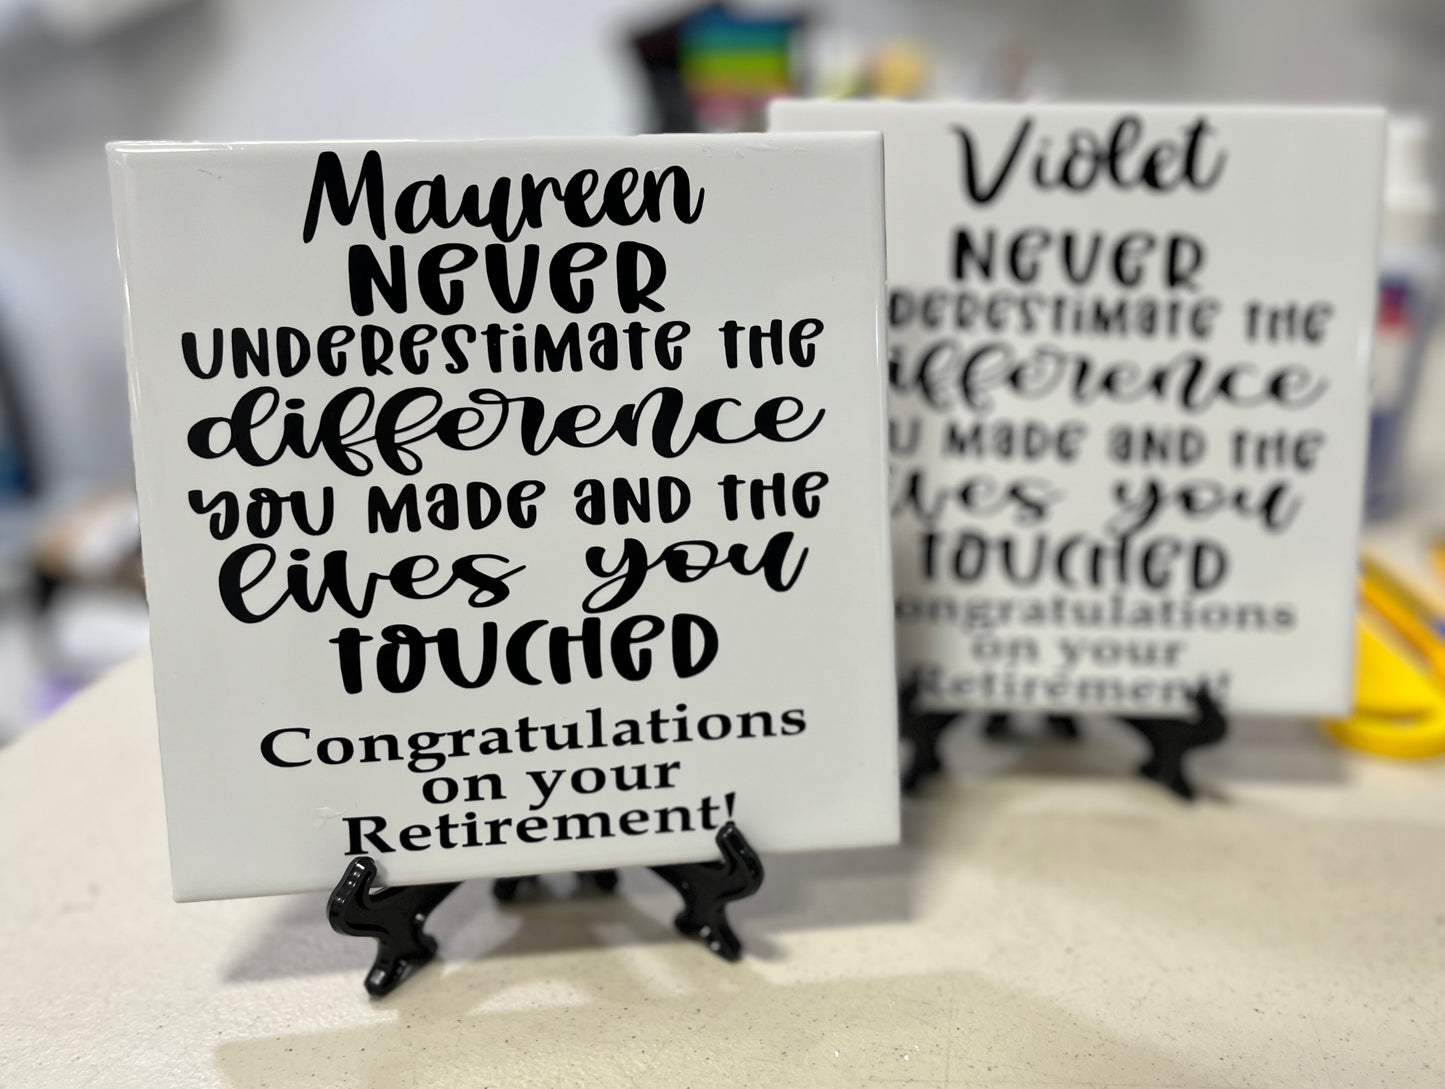 Maureen
NEVER
UNDERESTIMATE THE
difference
you MADE AND THE
lives you
TOUCHED
Congratulations
on your
Retirement!
Violet
NEVER
DERESTIMATE THE
ifference
U MADE AND THE
ives you
TOUCHED
ongratulations
on your
Retirement!